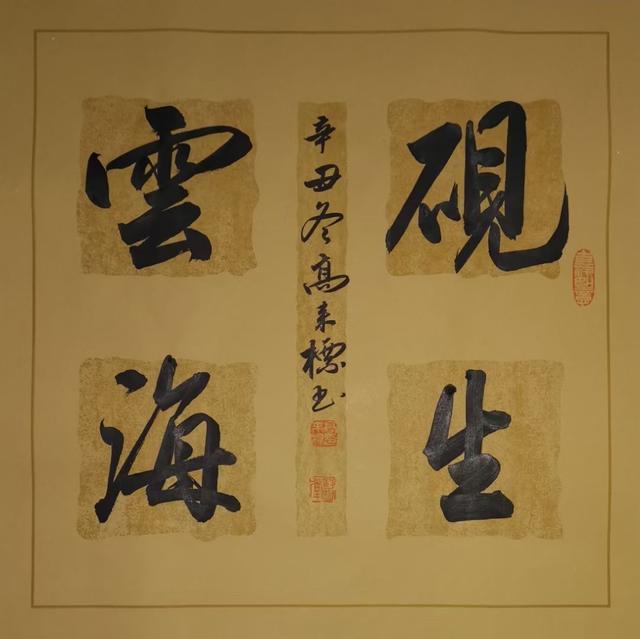 硯生
雲海
辛丑冬高来標书